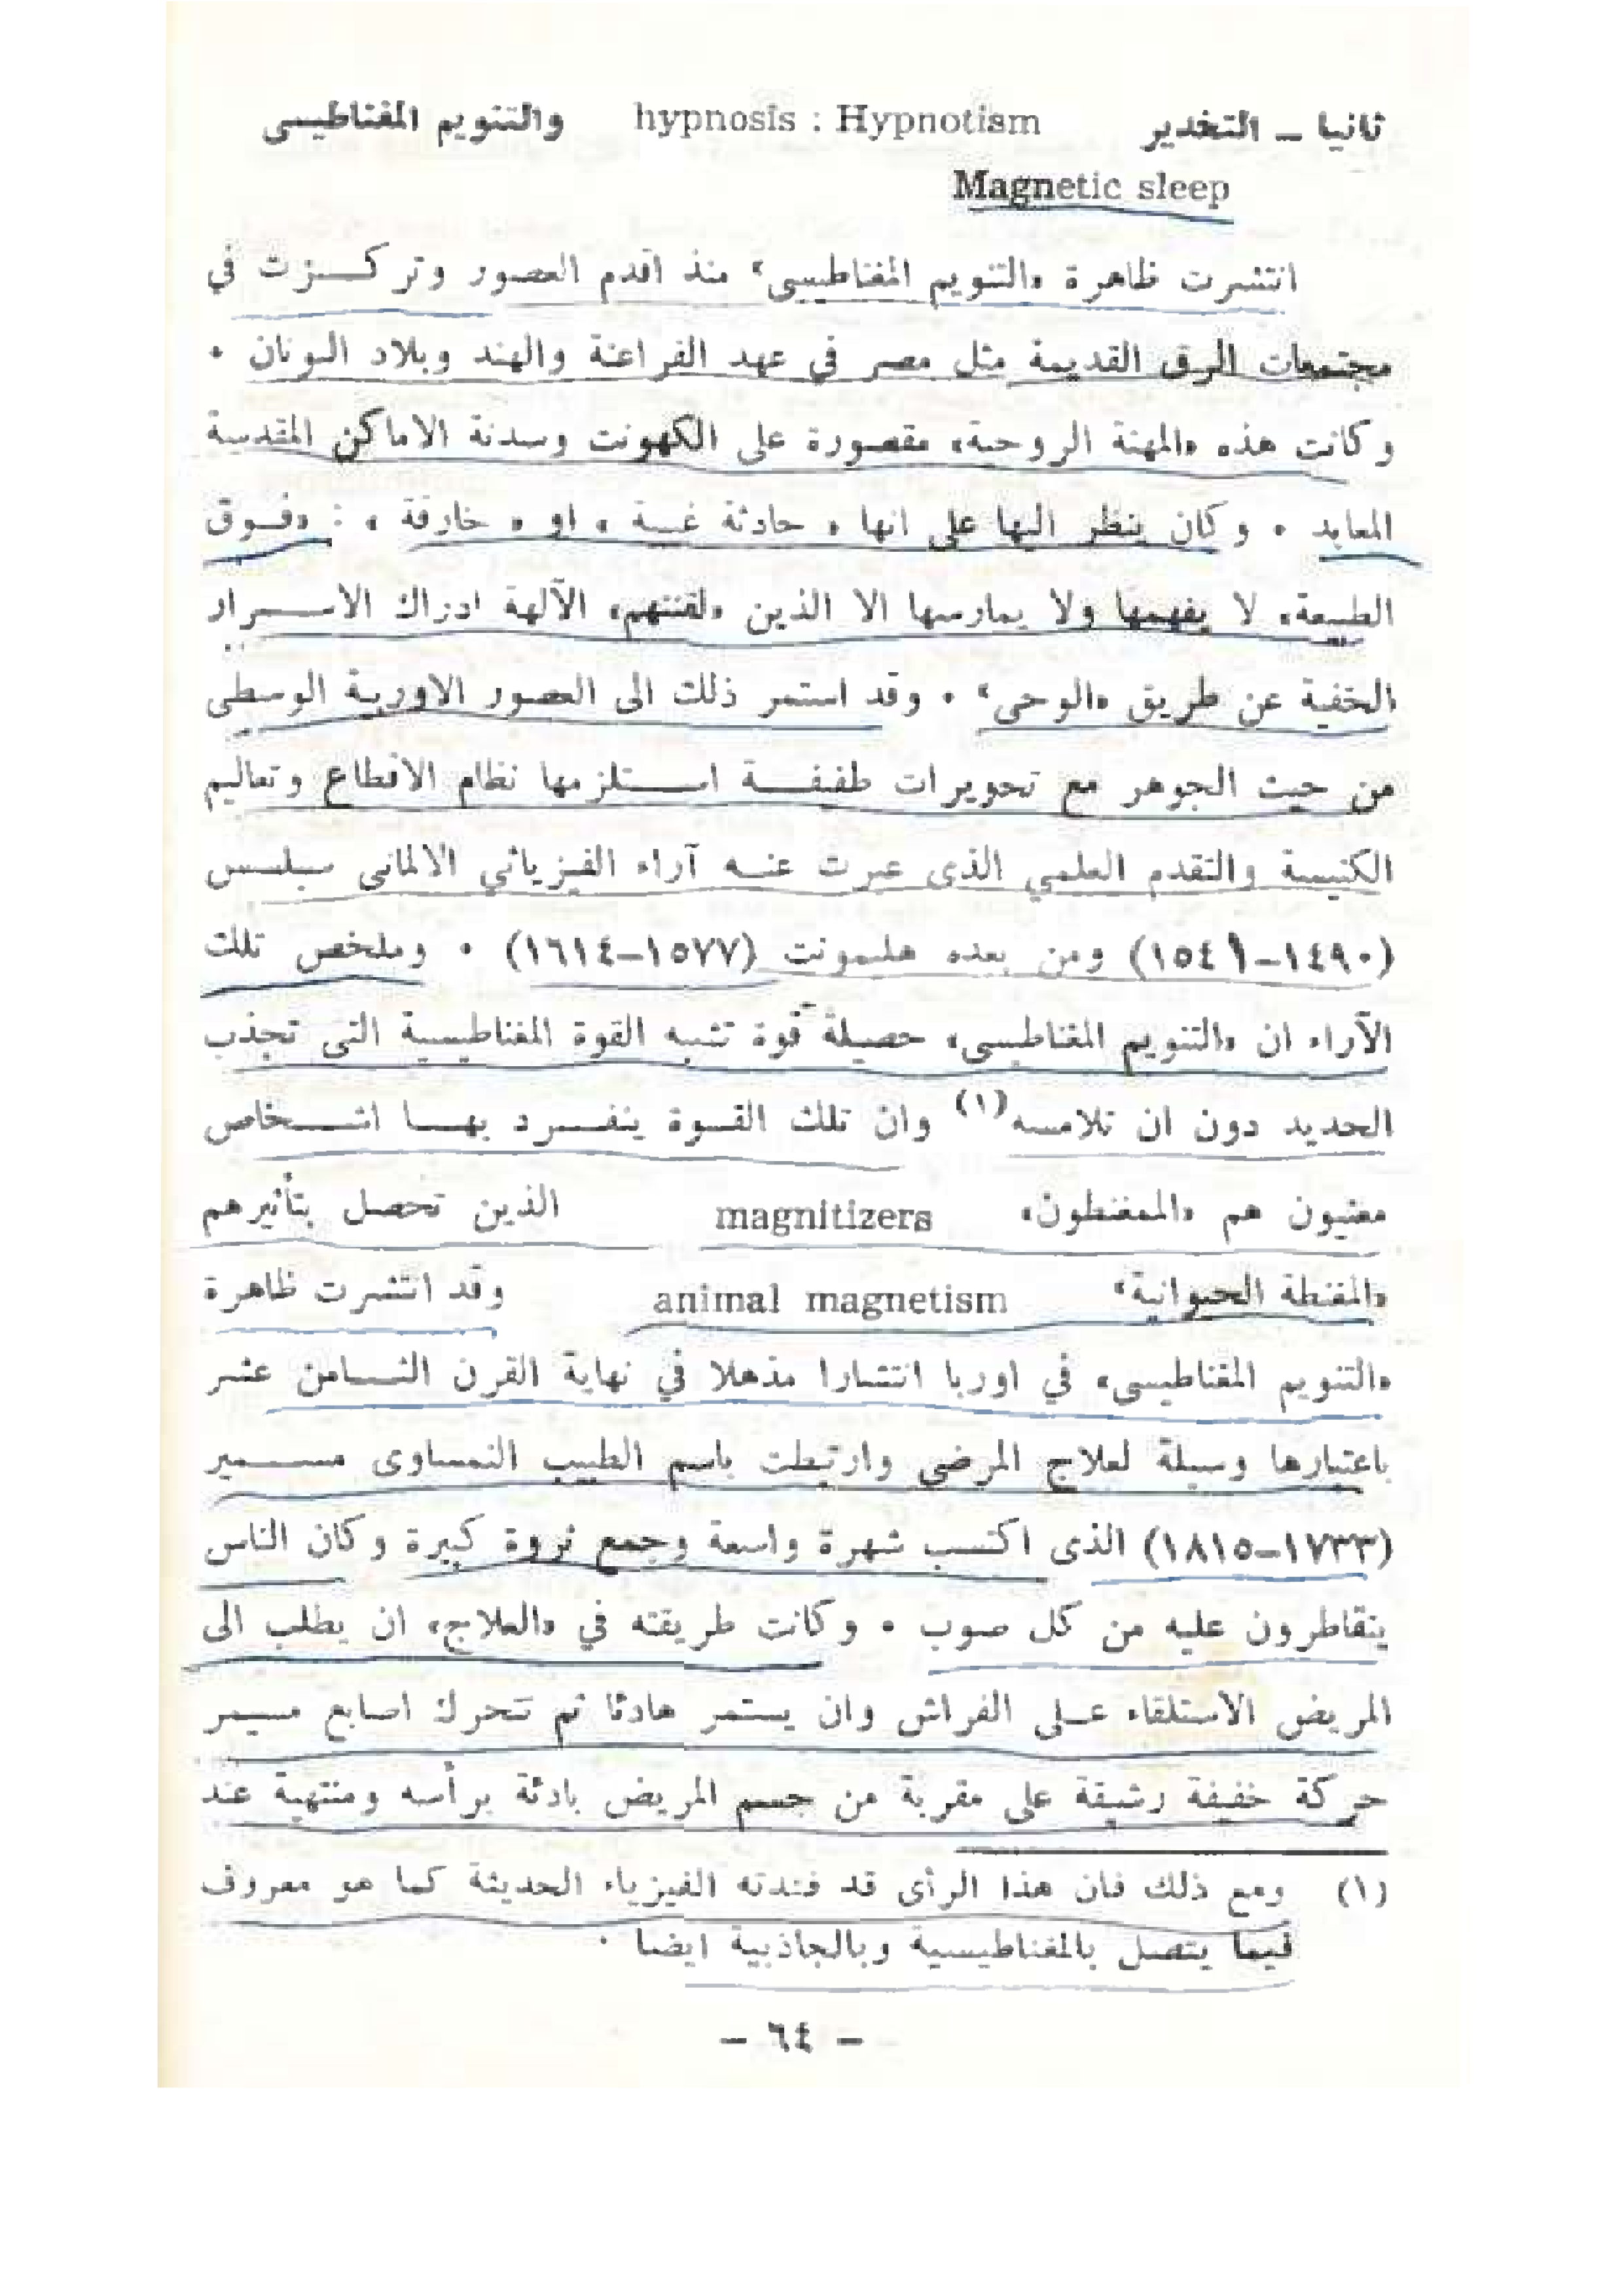 ثانيا ــ التخدير hypnosis : Hypnotism والتنويم المغناطيسى
Magnetic sleep
انتشرت ظاهرة «التنويم المغناطيسى» منذ اقدم العصور وتركــزت في
مجتمعات الرق القديمة مثل مصر في عهد الفراعنة والهند وبلاد اليونان ٠
وكانت هذه «المهنة الروحية» مقصورة على الكهونت وسدنة الاماكن المقدسة
المعابد ٠ وكان ينظر اليها على انها « حادثة غيبية » او « خارقة » : «فــوق
الطبيعة» لا يفهمها ولا يمارسها الا الذين «لقنتهم» الآلهة ادراك الاســرار
الخفية عن طريق «الوحى» ٠ وقد استمر ذلك الى العصور الاوربية الوسطى
من حيث الجوهر مع تحويرات طفيفــة اســتلزمها نظام الاقطاع وتعاليم
الكنيسة والتقدم العلمي الذى عبرت عنــه آراء الفيزيائي الالمانى سبلســس
(١٤٩٠ــ١٥٤١) ومن بعده هلمونت (١٥٧٧ــ١٦١٤) ٠ وملخص تلك
الآراء ان «التنويم المغناطيسى» حصيلة قوة تشبه القوة المغناطيسية التى تجذب
الحديد دون ان تلامسه(١) وان تلك القــوة ينفــرد بهــا اشــخاص
معنيون هم «الممغنطون» magnitizers الذين تحصل بتأثيرهم
«المغنطة الحيوانية» animal magnetism وقد انتشرت ظاهرة
«التنويم المغناطيسى» في اوربا انتشارا مذهلا في نهاية القرن الثــامن عشر
باعتبارها وسيلة لعلاج المرضى وارتبطت باسم الطبيب النمساوى مســمير
(١٧٣٣ــ١٨١٥) الذى اكتسب شهرة واسعة وجمع ثروة كبيرة وكان الناس
يتقاطرون عليه من كل صوب ٠ وكانت طريقته في «العلاج» ان يطلب الى
المريض الاستلقاء علــى الفراش وان يستمر هادئا ثم تتحرك اصابع مسيمر
حركة خفيفة رشيقة على مقربة من جسم المريض بادئة برأسه ومنتهية عند
(١) ومع ذلك فان هذا الرأى قد فندته الفيزياء الحديثة كما هو معروف
فيما يتصل بالمغناطيسية وبالجاذبية ايضا ٠
– ٦٤ –